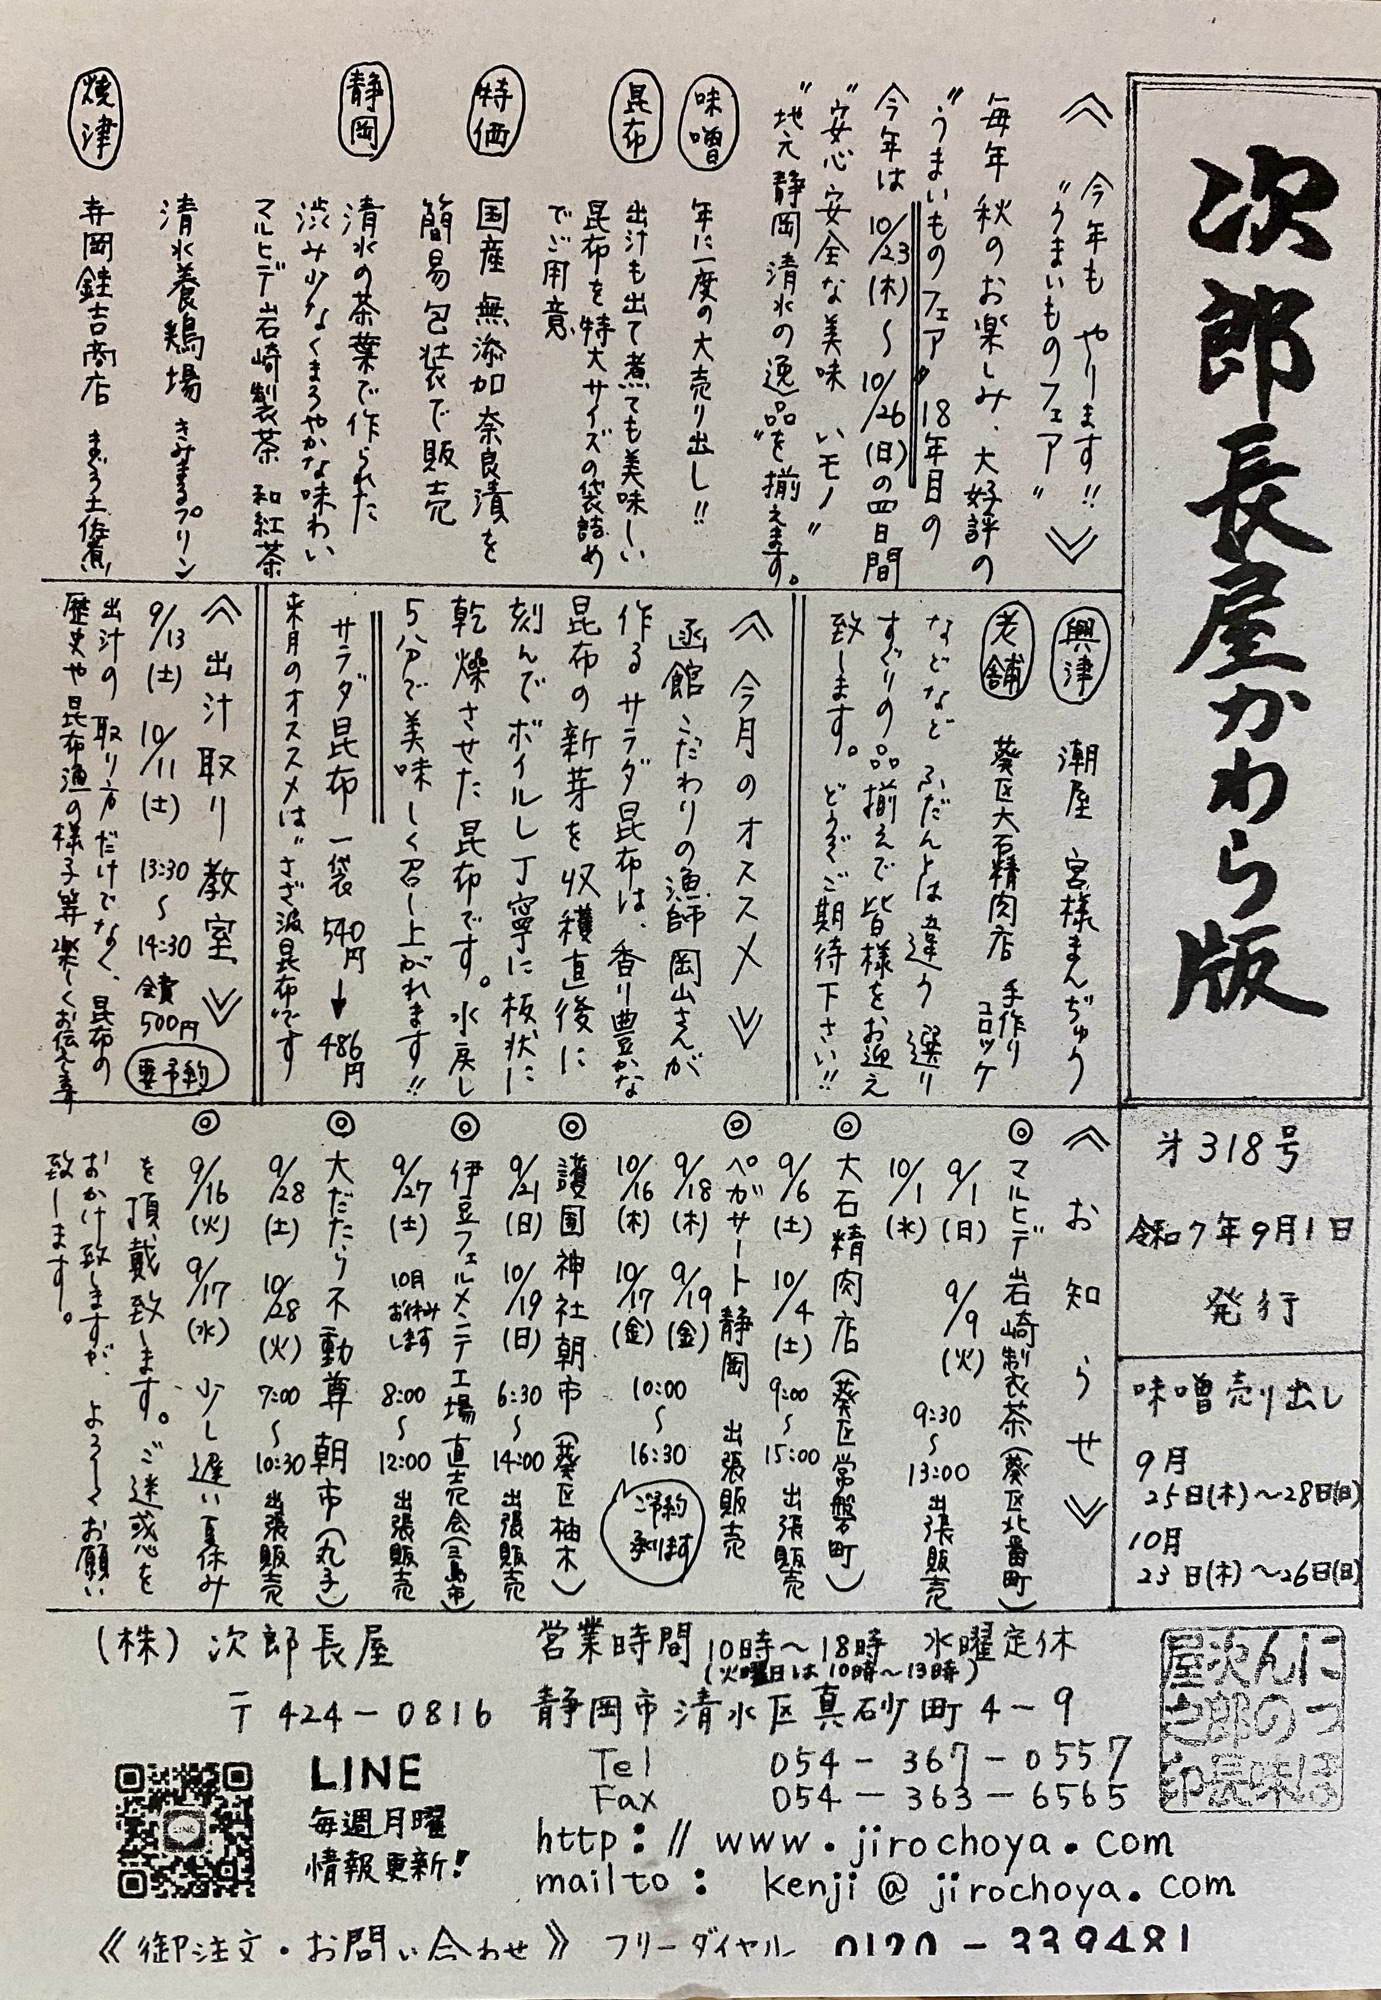 次郎長屋かわら版
才318号
令和7年9月1日
発行
味噌売り出し
9月
25日(木)〜28日(日)
10月
23日(木)〜26日(日)
≪今年も やります!!
"うまいものフェア"≫
毎年 秋のお楽しみ、大好評の
"うまいものフェア" 18年目の
今年は 10/23(木)〜10/26(日)の四日間
"安心安全な美味いモノ"
"地元静岡清水の逸品"を揃えます。
味噌 年に一度の大売り出し!!
昆布 出汁も出て煮ても美味しい
昆布を特大サイズの袋詰め
でご用意
特価 国産 無添加 奈良漬を
簡易包装で販売
静岡 清水の茶葉で作られた
渋み少なくまろやかな味わい
マルヒデ岩崎製茶 和紅茶
清水養鶏場 きみまるプリン
焼津 寺岡銈吉商店 まぐろ土佐煮
興津 潮屋 宮様まんぢゅう
老舗 葵区大石精肉店 手作りコロッケ
などなど ふだんとは違う選り
すぐりの品揃えで皆様をお迎え
致します。どうぞご期待下さい!!
≪今月のオススメ≫
函館 こだわりの漁師 岡山さんが
作るサラダ昆布は、香り豊かな
昆布の新芽を収穫直後に
刻んでボイルし丁寧に板状に
乾燥させた昆布です。水戻し
5分で美味しく召し上がれます!!
サラダ昆布 一袋 540円→486円
来月のオススメは"さざ波昆布"です
≪出汁取り教室≫
9/13(土) 10/11(土) 13:30〜14:30 会費500円 要予約
出汁の取り方だけでなく、昆布の
歴史や昆布漁の様子等楽しくお伝えます
≪お知らせ≫
◎マルヒデ岩崎製茶(葵区北番町)
9/1(日) 9/9(火)
10/1(水)
9:30〜13:00 出張販売
◎大石精肉店(葵区常磐町)
9/6(土) 10/4(土) 9:00〜15:00 出張販売
◎ペガサート静岡 出張販売
9/18(木) 9/19(金)
10/16(木) 10/17(金)
10:00〜16:30
ご予約承ります
◎護国神社朝市(葵区柚木)
9/21(日) 10/19(日) 6:30〜14:00 出張販売
◎伊豆フェルメンテ工場直売会(三島市)
9/27(土) 10月お休みします 8:00〜12:00 出張販売
◎大だたら不動尊朝市(丸子)
9/28(土) 10/28(火) 7:00〜10:30 出張販売
◎9/16(火) 9/17(水) 少し遅い夏休み
を頂戴致します。ご迷惑を
おかけ致しますが、よろしくお願い
致します。
(株)次郎長屋 営業時間 10時〜18時 水曜定休
(火曜日は10時〜13時)
〒424-0816 静岡市清水区真砂町4-9
Tel 054-367-0557
Fax 054-363-6565
http://www.jirochoya.com
mailto: kenji@jirochoya.com
LINE
毎週月曜
情報更新!
にっほんの味次郎長屋之印
≪御注文・お問い合わせ≫ フリーダイヤル 0120-339481